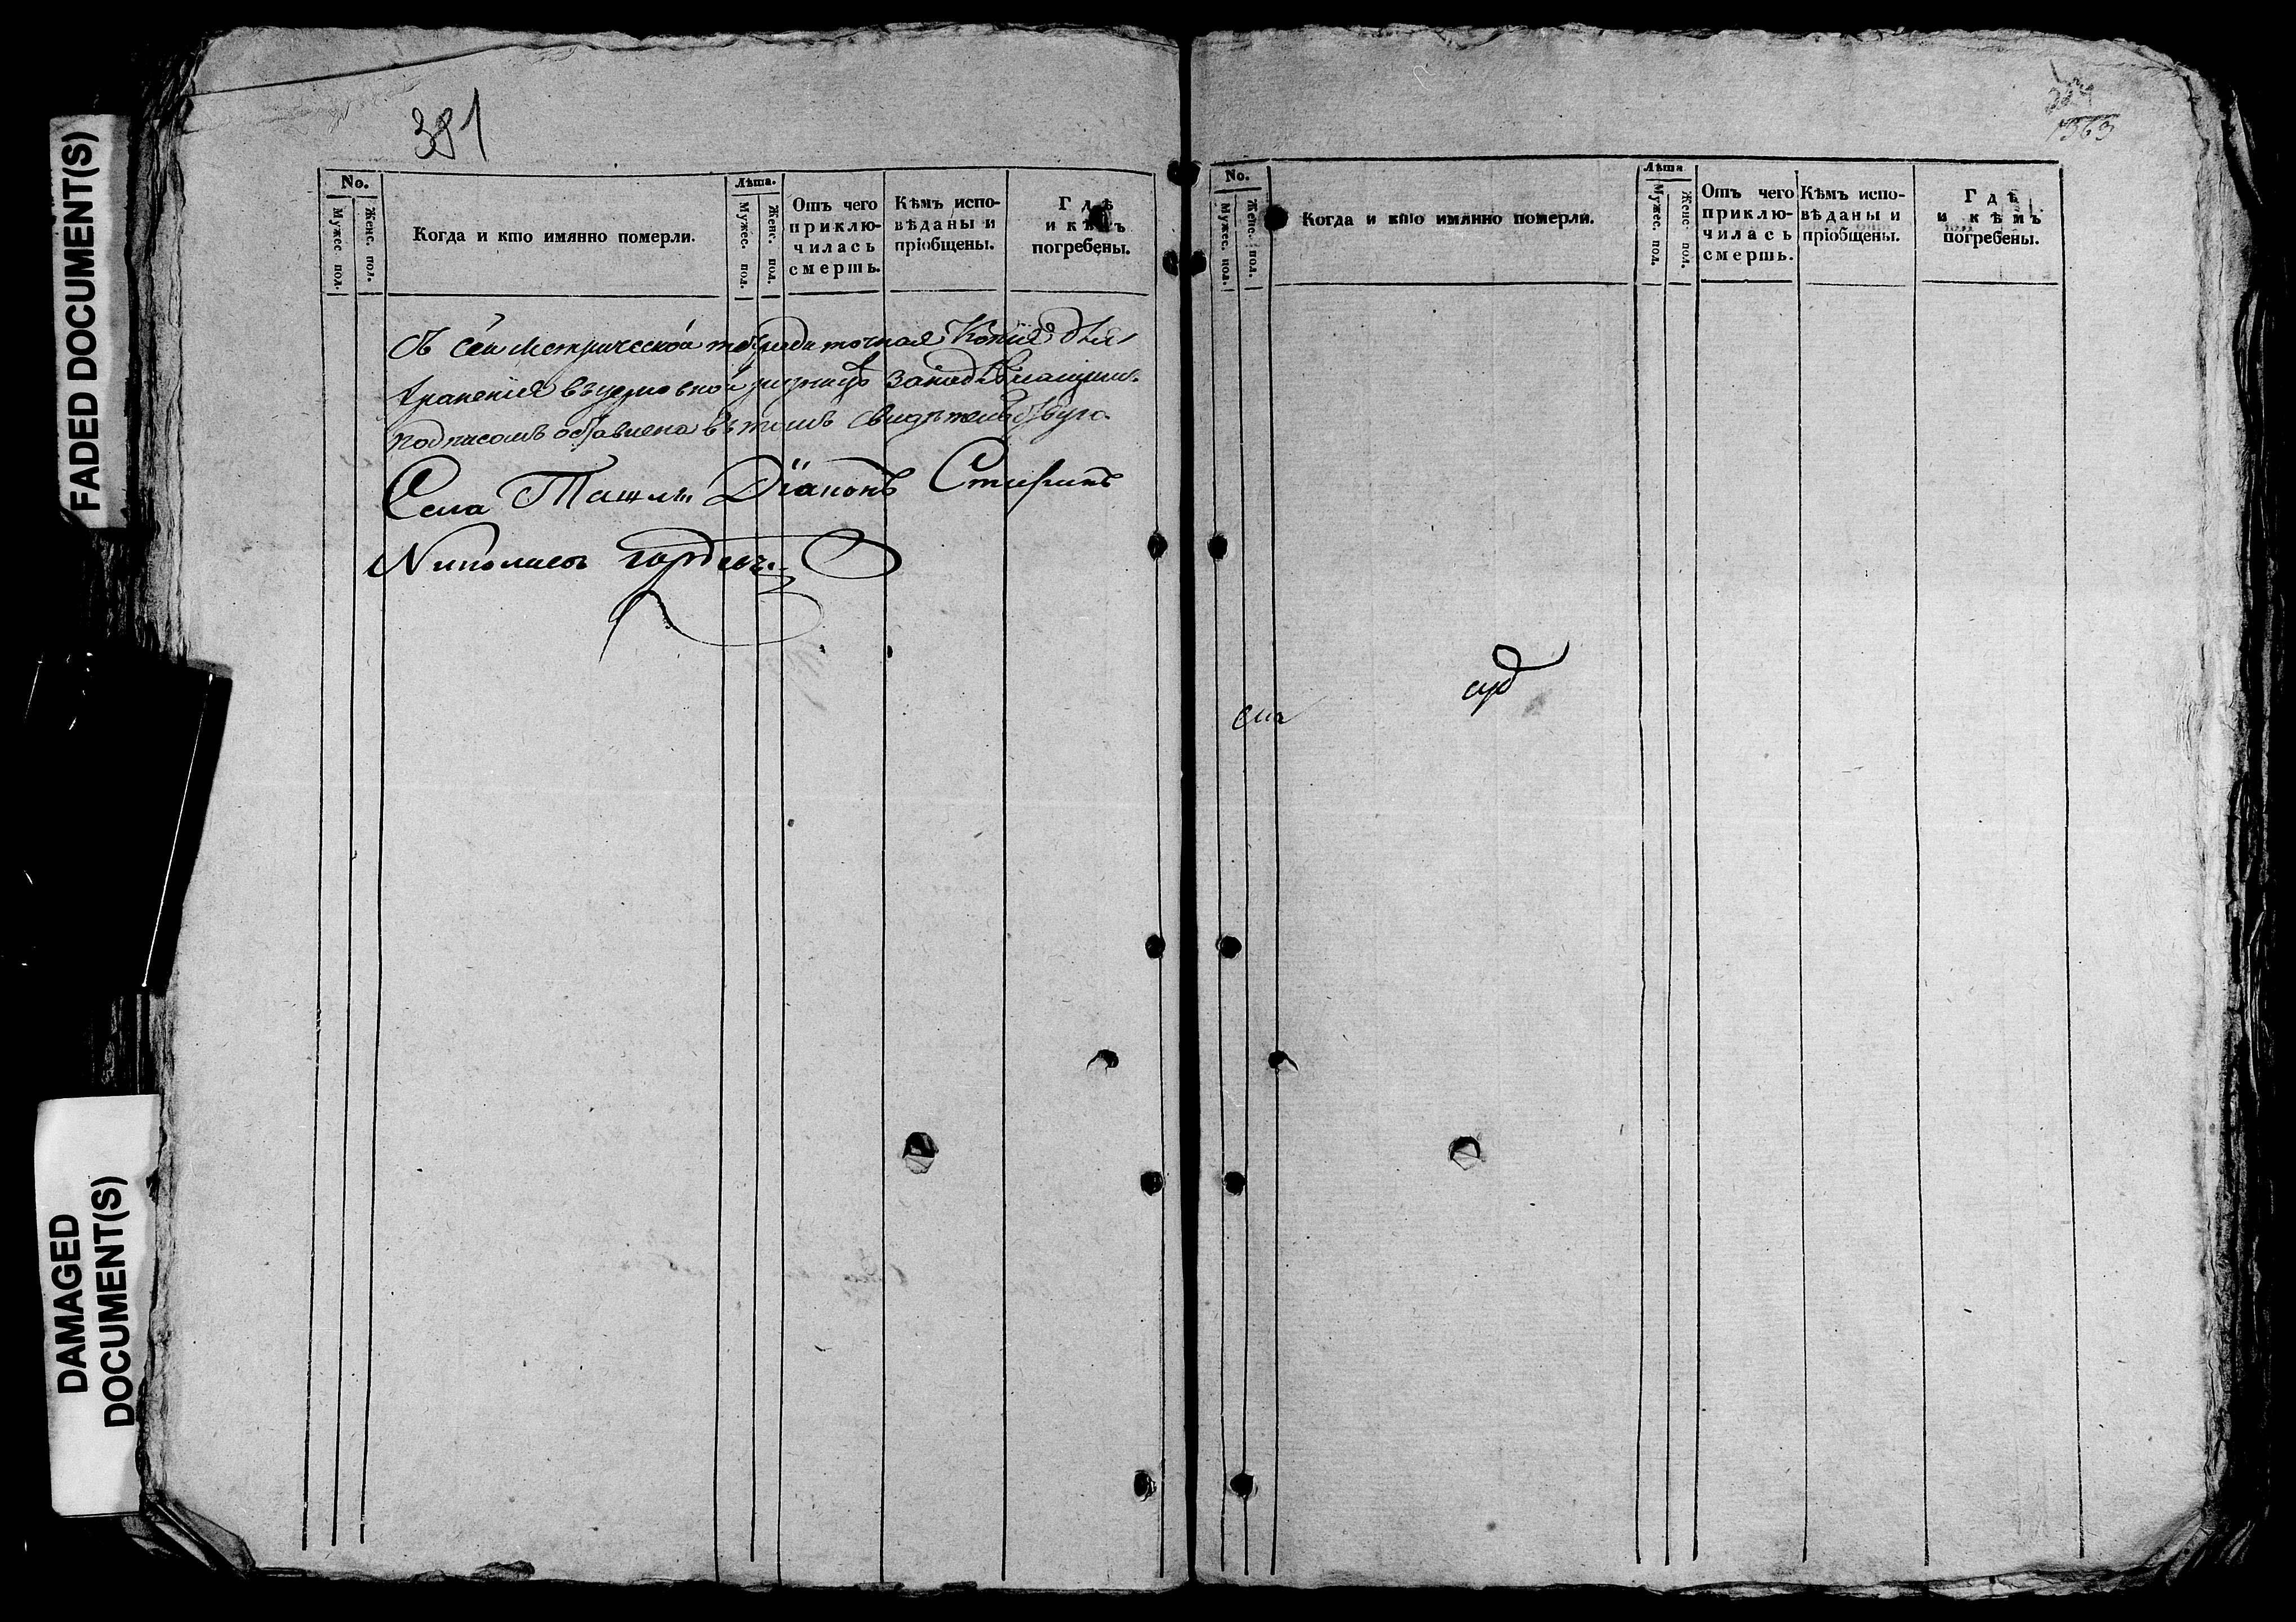 FADED DOCUMENT(S)
DAMAGED
DOCUMENT(S)
381
No.
Мужес. пол.
Женс. пол.
Когда и кто имянно померли.
Лѣта.
Мужес. пол.
Женс. пол.
Отъ чего
приклю-
чилась
смерть.
Кѣмъ испо-
вѣданы и
пріобщены.
Гдѣ
и кѣмъ
погребены.
Съ сей Метрической тетради точная Копія для
храненія въ церковной ризницѣ за подписаніемъ
подписомъ оставлена въ томъ свидѣтельствую
Села Ташлы Діаконъ Стефанъ
Николаевъ
1363
No.
Мужес. пол.
Женс. пол.
Когда и кто имянно померли.
Лѣта
Мужес. пол.
Женс. пол.
Отъ чего
приклю-
чилась
смерть.
Кѣмъ испо-
вѣданы и
пріобщены.
Гдѣ
и кѣмъ
погребены.